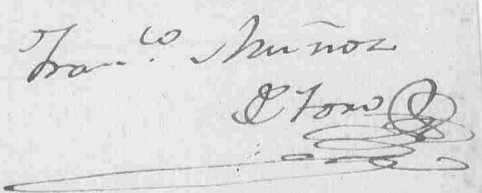 Fran.co Muñoz
Toro